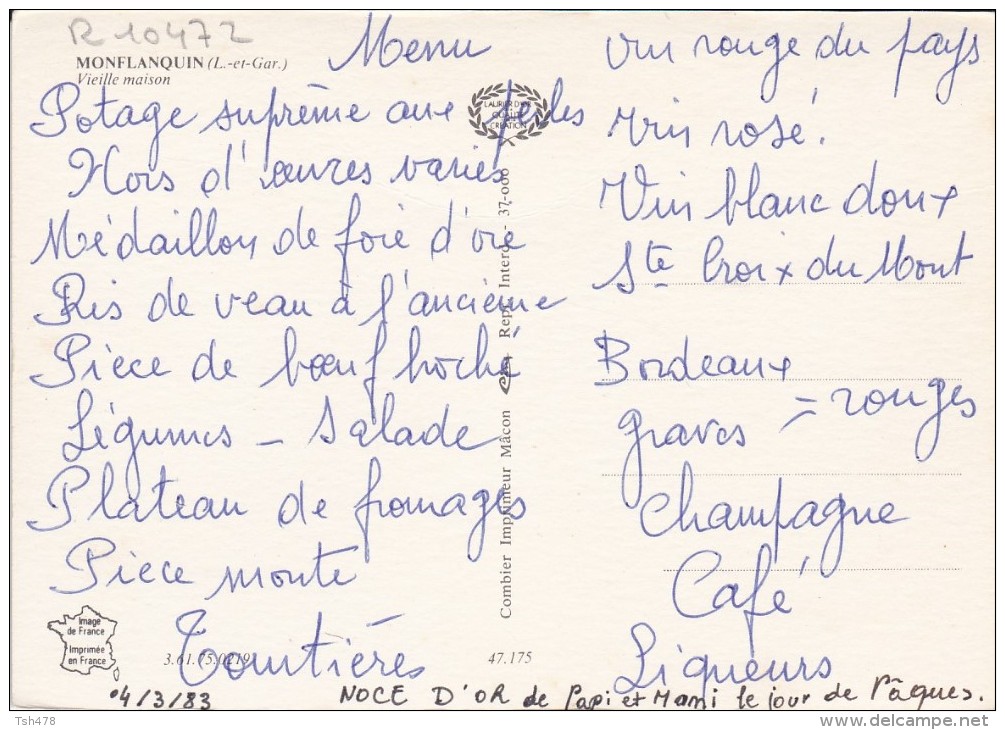 R 10472
MONFLANQUIN (L.-et-Gar.)
Vieille maison
Menu
Potage suprême aux perles
Hors d'œuvres variés
Médaillon de foie d'oie
Ris de veau à l'ancienne
Pièce de bœuf hoché
Légumes - Salade
Plateau de fromages
Pièce monte
Tourtières
vin rouge du pays
Vin rosé.
Vin blanc doux
Ste Croix du Mont
Bordeaux
graves = rouges
Champagne
Café
Liqueurs
LAURIER D'OR
QUALITÉ
CRÉATION
Combier Imprimeur Mâcon
Repr. Interd. - 37-000
Image
de France
Imprimée
en France
3.61.75.0219
47.175
04/3/83
NOCE D'OR de Papi et Mami le jour de Pâques.
Tsh478